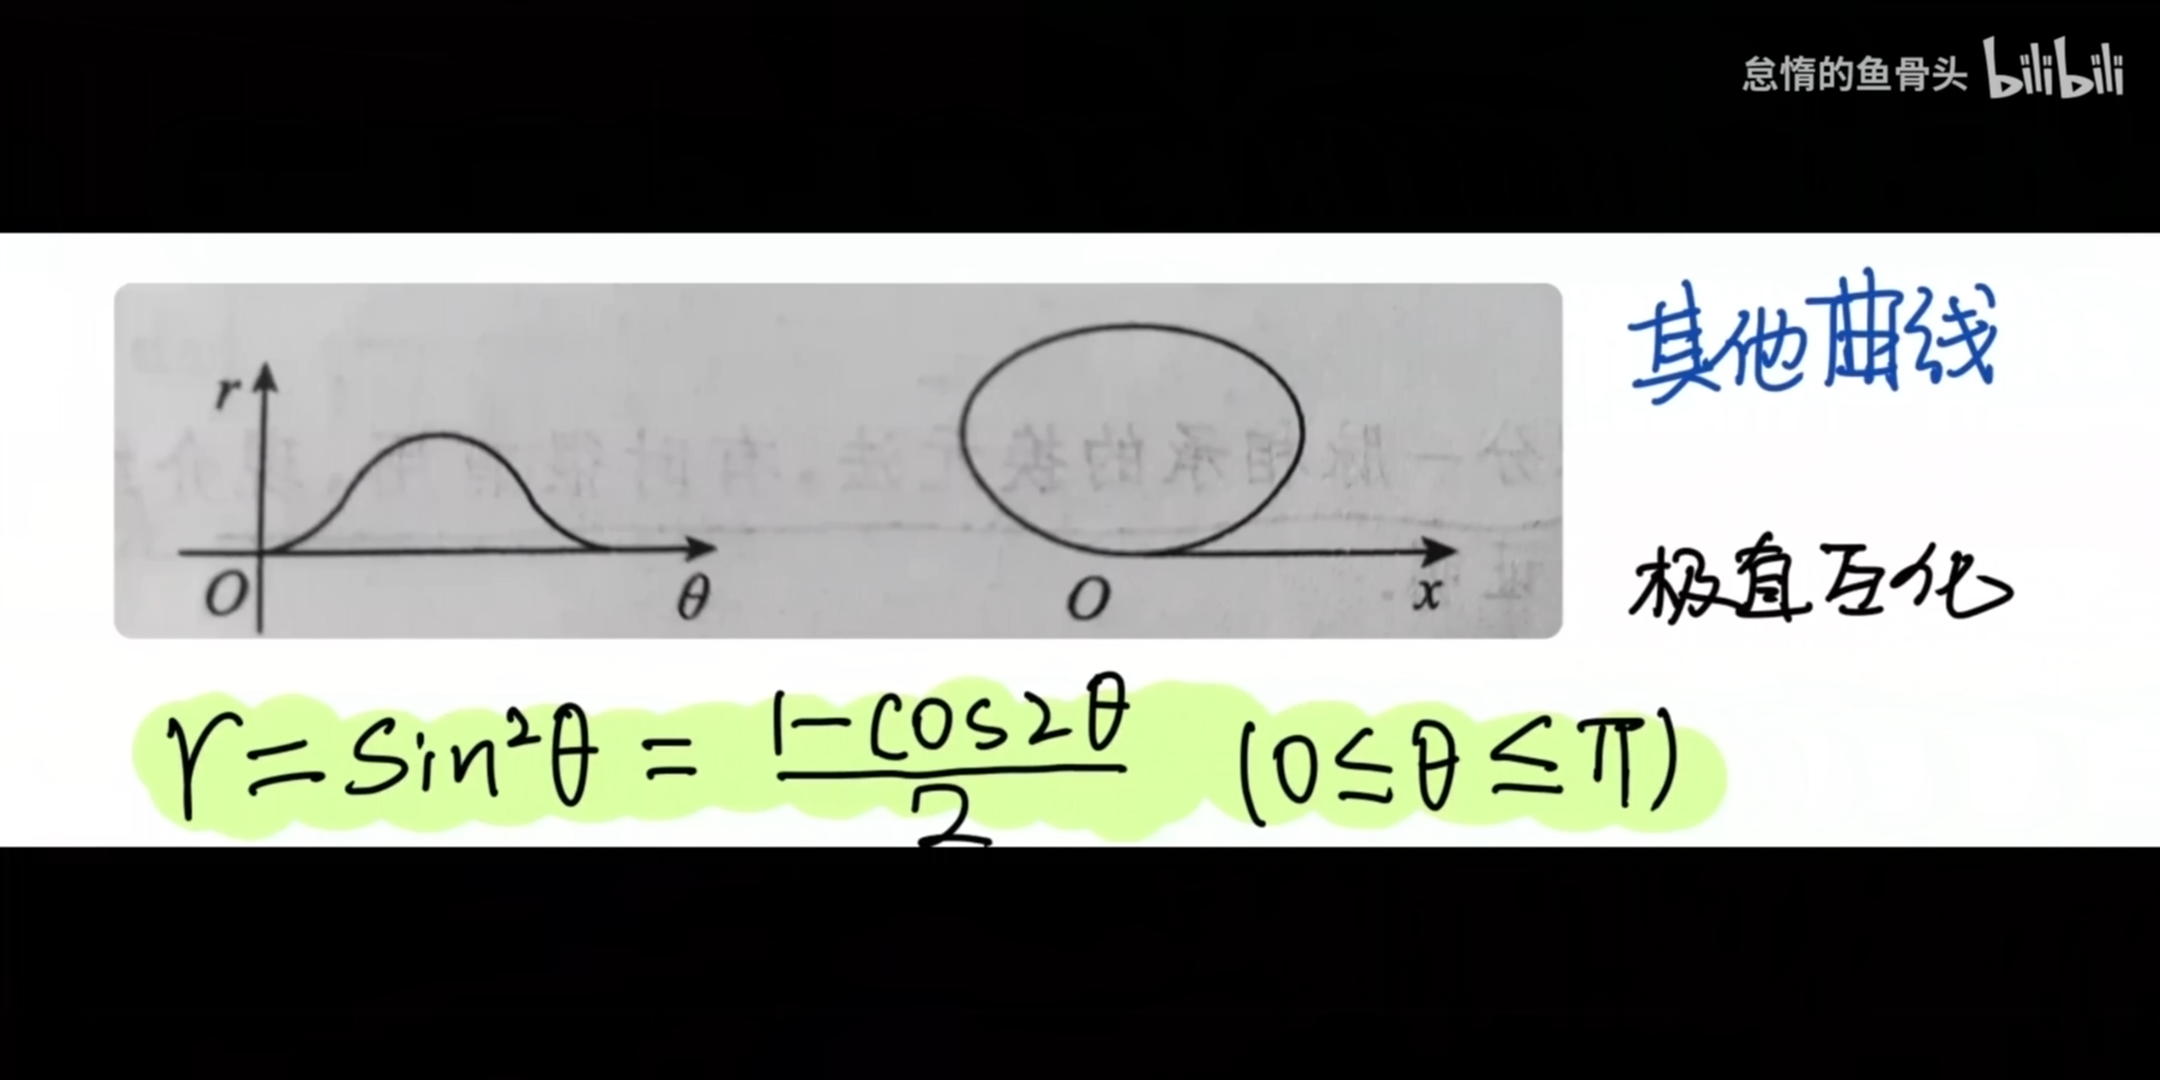 怠惰的鱼骨头 bilibili
其他曲线
r
O
θ
O
x
极直互化
r=sin²θ = (1-cos2θ)/2 (0≤θ≤π)